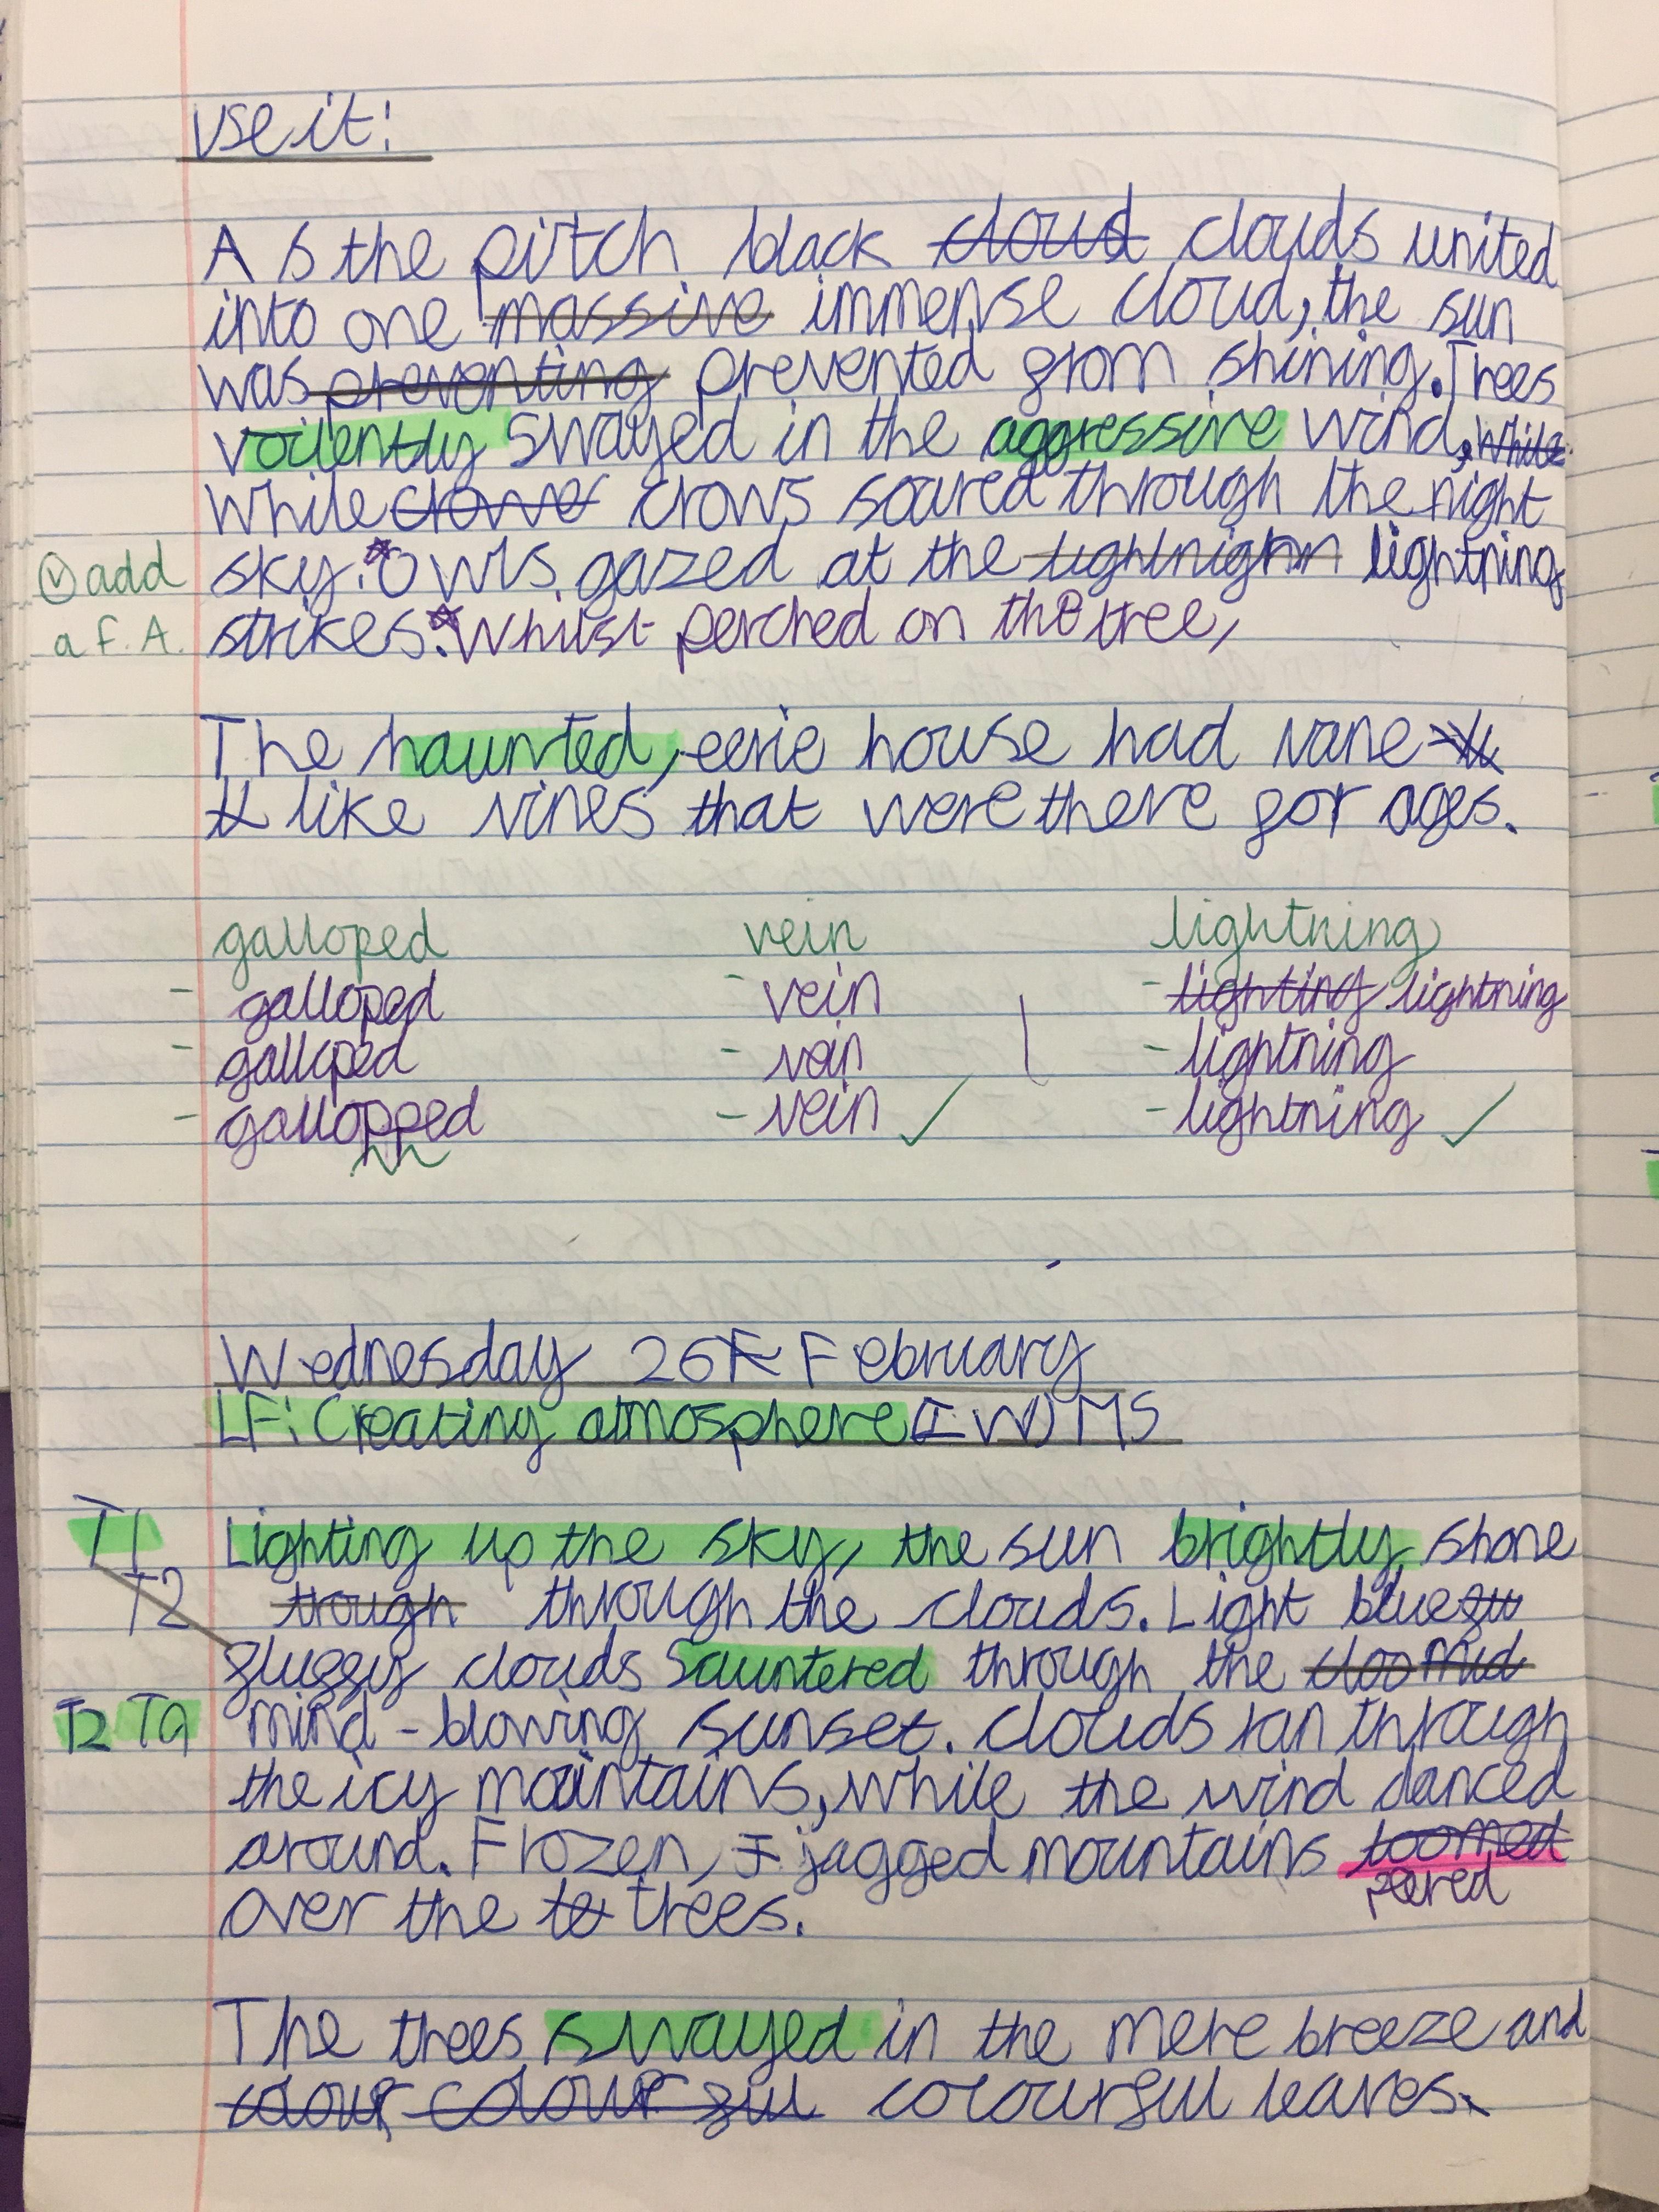 Use it:
As the pitch black cloud clouds united
into one massive immense cloud, the sun
was preventing prevented from shining. Trees
voilently swayed in the aggressive wind, while
while crows soared through the night
add sky. Owls gazed at the lightning
a F.A. strikes. Whilst perched on the tree,
The haunted, eerie house had vane
like vines that were there for ages.
galloped vein lightning
- galloped - vein - lighting lightning
- galloped - vein - lightning
- gallopped - vein ✓ - lightning ✓
Wednesday 26 F February
LF: Creating atmosphere (IW) MS
T1 Lighting up the sky, the sun brightly shone
T2 trough through the clouds. Light blue
fluffy clouds sauntered through the
T2 T9 mind-blowing sunset. Clouds ran through
the icy mountains, while the wind danced
around. Frozen, J jagged mountains loomed
peered
over the te trees.
The trees swayed in the mere breeze and
colour colour ful colourful leaves.